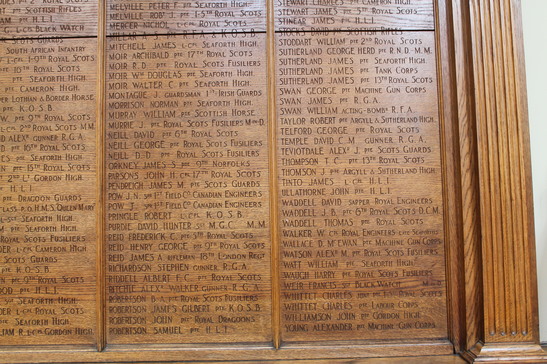 SCOTTISH RIFLES
L-CPL BLACK WATCH
SOUTH AFRICAN INFANTRY
L-CPL 9TH ROYAL SCOTS
PTE 10TH ROYAL SCOTS
PTE SEAFORTH HIGH.
PTE CAMERON HIGH.
LOTHIAN & BORDER HORSE
PTE K.O.S.B.
PTE 9TH ROYAL SCOTS
L-CPL 2ND ROYAL SCOTS M.M.
GUNNER R.G.A.
PTE 16TH ROYAL SCOTS
PTE SEAFORTH HIGH.
PTE H.L.I.
GORDON HIGH.
PTE DRAGOON GUARDS
H.M.S. QUEEN MARY
SEAFORTH HIGH.
SEAFORTH HIGH.
ROYAL SCOTS FUSILIERS
L-CPL CAMERON HIGH.
SCOTS GUARDS
PTE K.O.S.B.
PTE 9TH ROYAL SCOTS
PTE H.L.I.
ROYAL SCOTS
SEAFORTH HIGH.
L-CPL GORDON HIGH.
MELVILLE PETER F. SEAFORTH HIGH.
MELVILLE ROBT J. PTE 1-5TH ROYAL SCOTS
MERCER NICHOL ROYAL SCOTS
K.O.S.B.
MITCHELL JAMES L-CPL SEAFORTH HIGH.
MOIR ARCHIBALD PTE 17TH ROYAL SCOTS
MOIR R.D. PTE ROYAL SCOTS FUSILIERS
MOIR WM DOUGLAS PTE SEAFORTH HIGH.
MOIR WALTER C. PTE SEAFORTH HIGH.
MONTAGUE J. GUARDSMAN 1ST IRISH GUARDS
MORRISON NORMAN PTE SEAFORTH HIGH.
MURRAY WILLIAM PTE SCOTTISH HORSE
MURRIE J. PTE ROYAL SCOTS FUSILIERS
NEILL DAVID PTE 6TH ROYAL SCOTS
NEILL GEORGE PTE ROYAL SCOTS FUSILIERS
NEILL D.D. PTE ROYAL SCOTS FUSILIERS
ORKNEY JAMES S. PTE 9TH NORFOLKS
PARSONS JOHN H. CPL 17TH ROYAL SCOTS
PENDREIGH JAMES M. PTE SCOTS GUARDS
POW J.N. SPR 1ST FIELD CO CANADIAN ENGINEERS
POW T. SPR 1ST FIELD CO CANADIAN ENGINEERS
PRINGLE ROBERT L-CPL K.O.S.B.
PURDIE DAVID HUNTER SGT M.G.C. M.M.
REID FREDERICK C. 5TH ROYAL SCOTS
REID HENRY GEORGE PTE 9TH ROYAL SCOTS
REID JAMES A. RIFLEMAN 18TH LONDON REGT
RICHARDSON STEPHEN GUNNER R.G.A.
RIDDELL ALBERT F.C. PTE ROYAL SCOTS
RITCHIE ALEX WALKER GUNNER R.G.A.
ROBERTSON B.A. PTE ROYAL SCOTS FUSILIERS
ROBERTSON JAMES GILBERT PTE K.O.S.B.
ROBERTSON JOHN PTE ROYAL DRAGOONS
ROBERTSON SAMUEL PTE H.L.I.
STEWART CHARLES SEAFORTH HIGH.
STEWART JAMES PTE SCOTS
STINEAR JAMES PTE H.L.I.
STOCKS DAVID PTE SCOTTISH RIFLES
STODDART WILLIAM PTE 2ND ROYAL SCOTS
SUTHERLAND GEORGE HERD PTE R.N.D. M.M.
SUTHERLAND JAMES PTE SEAFORTH HIGH.
SUTHERLAND JAMES PTE TANK CORPS
SUTHERLAND JAMES PTE 13TH ROYAL SCOTS
SWAN GEORGE PTE MACHINE GUN CORPS
SWAN JAMES PTE R.G.A.
SWAN WILLIAM ACTING-BOMBR R.F.A.
TAYLOR ROBERT PTE ARGYLL & SUTHERLAND HIGH.
TELFORD GEORGE PTE ROYAL SCOTS
TEMPLE DAVID C.M. GUNNER R.G.A.
TEVIOTDALE ALEXR J. PTE SCOTS GUARDS
THOMPSON T.C. PTE 13TH ROYAL SCOTS
THOMSON J. PTE ARGYLL & SUTHERLAND HIGH.
TINTO JAMES L-CPL H.L.I.
ULLATHORNE JOHN PTE H.L.I.
WADDELL DAVID SAPPER ROYAL ENGINEERS
WADDELL J.B. PTE 6TH ROYAL SCOTS D.C.M.
WADDELL THOMAS PTE ROYAL SCOTS
WALKER W. CPL ROYAL ENGINEERS
WALLACE D. MCEWAN PTE MACHINE GUN CORPS
WATSON ALEXR M. PTE ROYAL SCOTS FUSILIERS
WATT WILLIAM PTE SEAFORTH HIGH.
WAUGH HARRY PTE ROYAL SCOTS FUSILIERS
WEIR FRANCIS PTE BLACK WATCH
WHITTET CHARLES ROYAL SCOTS
WHITTET CHARLES PTE LABOUR CORPS
WILLIAMSON JOHN PTE GORDON HIGH.
YOUNG ALEXANDER PTE MACHINE GUN CORPS